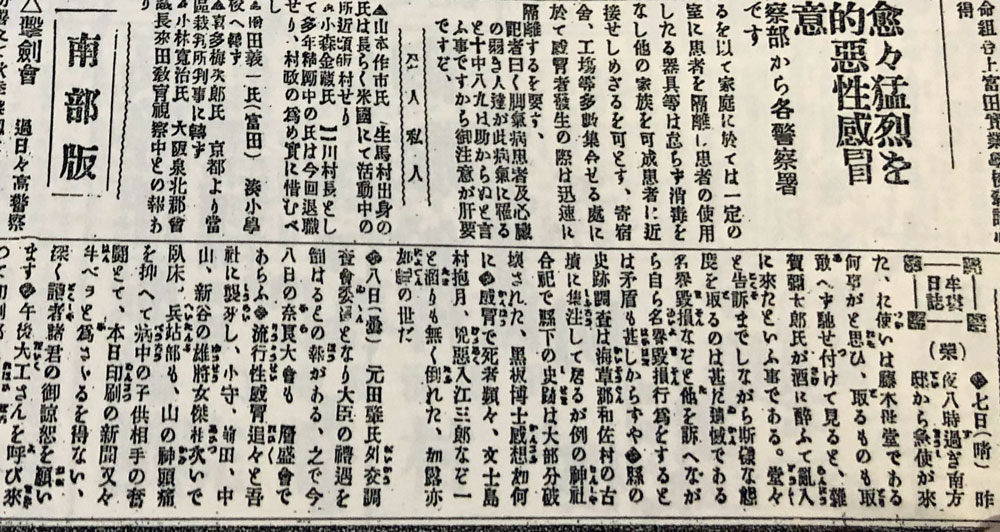 得
愈々猛烈を
的惡性感冒
意
察部から各警察署
です
るを以て家庭に於ては一定の
室に患者を隔離し患者の使用
したる器具等は怠らず消毒を
なし他の家族を可成患者に近
接せしめざるを可とす、寄宿
舍、工塲等多數集合せる處に
於て感冒者發生の際は迅速に
隔離するを要す、
記者曰く脚氣病患者及心臟
の弱き人達が此病氣に罹る
と十中八九は助からぬと言
ふ事ですから御注意が肝要
ですぞ、
人私人
▲山本作市氏 生馬村出身の
氏は長らく米國にて活動中の
所近頃歸村せり
小森金藏氏 三川村長とし
て多年精勵中の氏は今回退職
せり・村政の爲め實に惜むべ
田義一氏(富田) 湊小學
校へ轉ず
喜多梅次郎氏 京都より當
區裁判所判事に轉ず
▲小林寬治氏 大阪泉北郡會
議長來田敎育視察中との報あ
南部版
△擊劍會 過日々高警察
牟婁
日誌
(柴)
◆七日(晴) 昨
夜八時過ぎ南方
邸から急使が來
た、お使いは藤木世堂である
何事がと思ひ、取るものも取
敢へず馳せ付けて見ると、雜
賀彌太郎氏が酒に醉ふて亂入
に來たといふ事である。堂々
と告訴までしながら斯樣な態
度を取るのは甚だ遺憾である
名譽毀損などと他を訴へなが
ら自ら名譽毀損行爲をすると
は矛盾も甚しからずや◆縣の
史跡調査は海草郡和佐村の古
墳に集注して居るが例の神社
合祀で縣下の史跡は大部分破
壞された、黑板博士感想如何
に◆感冒で死者頻々、文士島
村抱月、兇惡入江三郎など一
と溜りも無く倒れた、如露亦
如電の世だ
◆八日(曇) 元田肇氏外交調
査會委員となり大臣の禮遇を
賜はるとの報がある、之で今
八日の奈良大會も一層盛會で
あらふ◆流行性感冒追々と吾
社に襲來し、小守、輸田、中
山、新谷の雄將女傑相次いで
臥床、兵站部も、山の神頭痛
を抑へて病中の子供相手の奮
鬪とて、本日印刷の新聞又々
半ペラと爲さゞるを得ない、
深く讀者諸君の御諒恕を願い
ます◆午後大工さんを呼び來